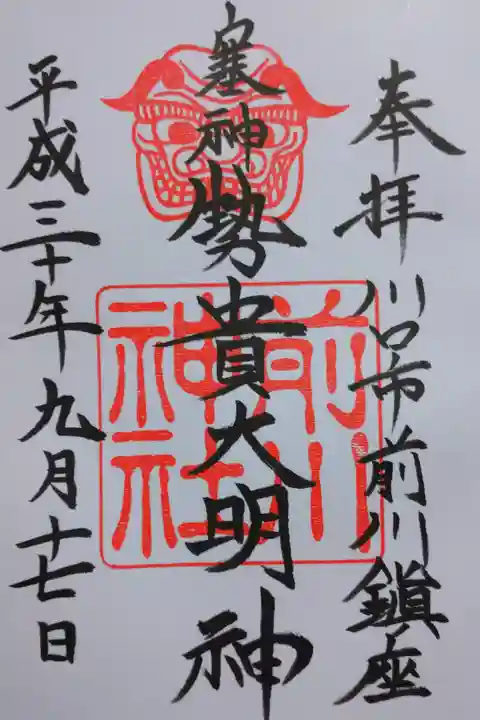 奉拝 川口市前川鎮座
塞神 勢貴大明神
平成三十年九月十七日
前川
神社